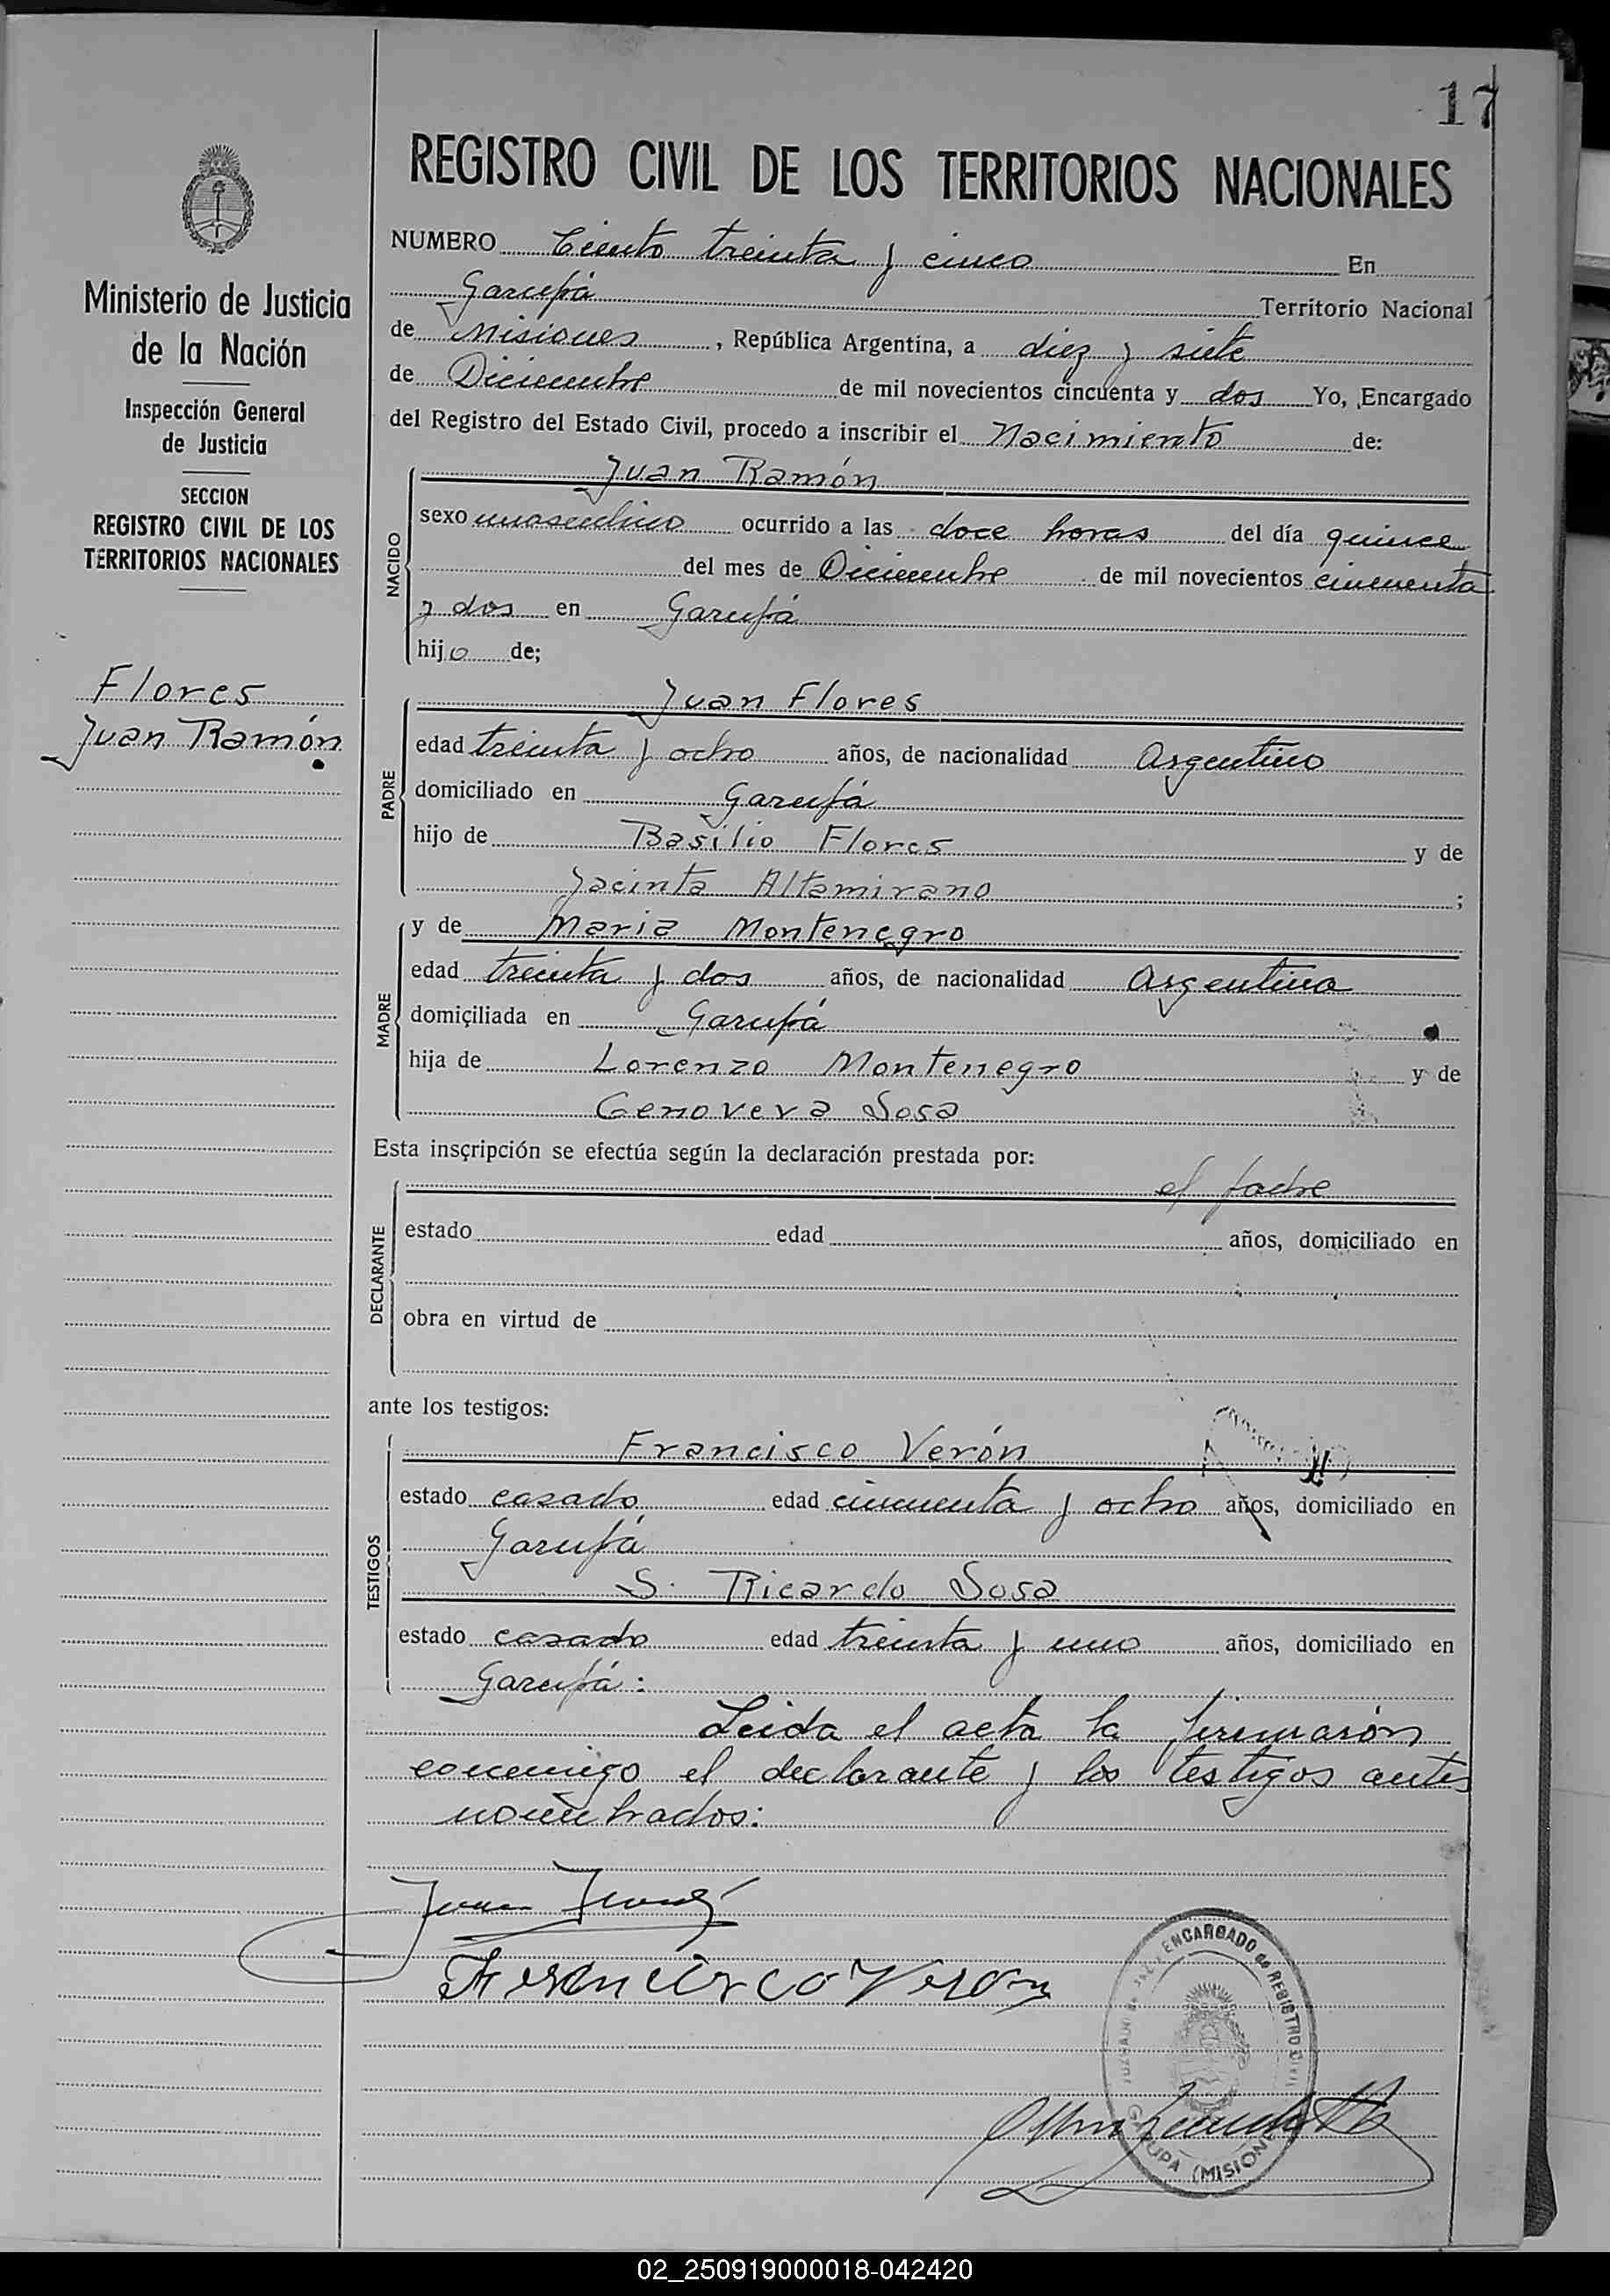 17
REGISTRO CIVIL DE LOS TERRITORIOS NACIONALES
Ministerio de Justicia
de la Nación
Inspección General
de Justicia
SECCION
REGISTRO CIVIL DE LOS
TERRITORIOS NACIONALES
Flores
Juan Ramón
NUMERO Ciento treinta y cinco En
Garupá Territorio Nacional
de Misiones, República Argentina, a diez y siete
de Diciembre de mil novecientos cincuenta y dos Yo, Encargado
del Registro del Estado Civil, procedo a inscribir el Nacimiento de:
NACIDO
Juan Ramón
sexo masculino ocurrido a las doce horas del día quince
del mes de Diciembre de mil novecientos cincuenta
y dos en Garupá
hijo de;
PADRE
Juan Flores
edad treinta y ocho años, de nacionalidad Argentino
domiciliado en Garupá
hijo de Basilio Flores y de
Jacinta Altamirano ;
MADRE
y de Maria Montenegro
edad treinta y dos años, de nacionalidad Argentina
domiciliada en Garupá
hija de Lorenzo Montenegro y de
Genoveva Sosa
Esta inscripción se efectúa según la declaración prestada por:
DECLARANTE
el padre
estado edad años, domiciliado en
obra en virtud de
ante los testigos:
TESTIGOS
Francisco Verón
estado casado edad cincuenta y ocho años, domiciliado en
Garupá
S. Ricardo Sosa
estado casado edad treinta y uno años, domiciliado en
Garupá:
Leida el acta la firmarón
conmigo el declarante y los testigos antes
nombrados:
Juan
Francisco Veron
ENCARGADO de REGISTRO Civil
GARUPA (MISIONES)
02_250919000018-042420